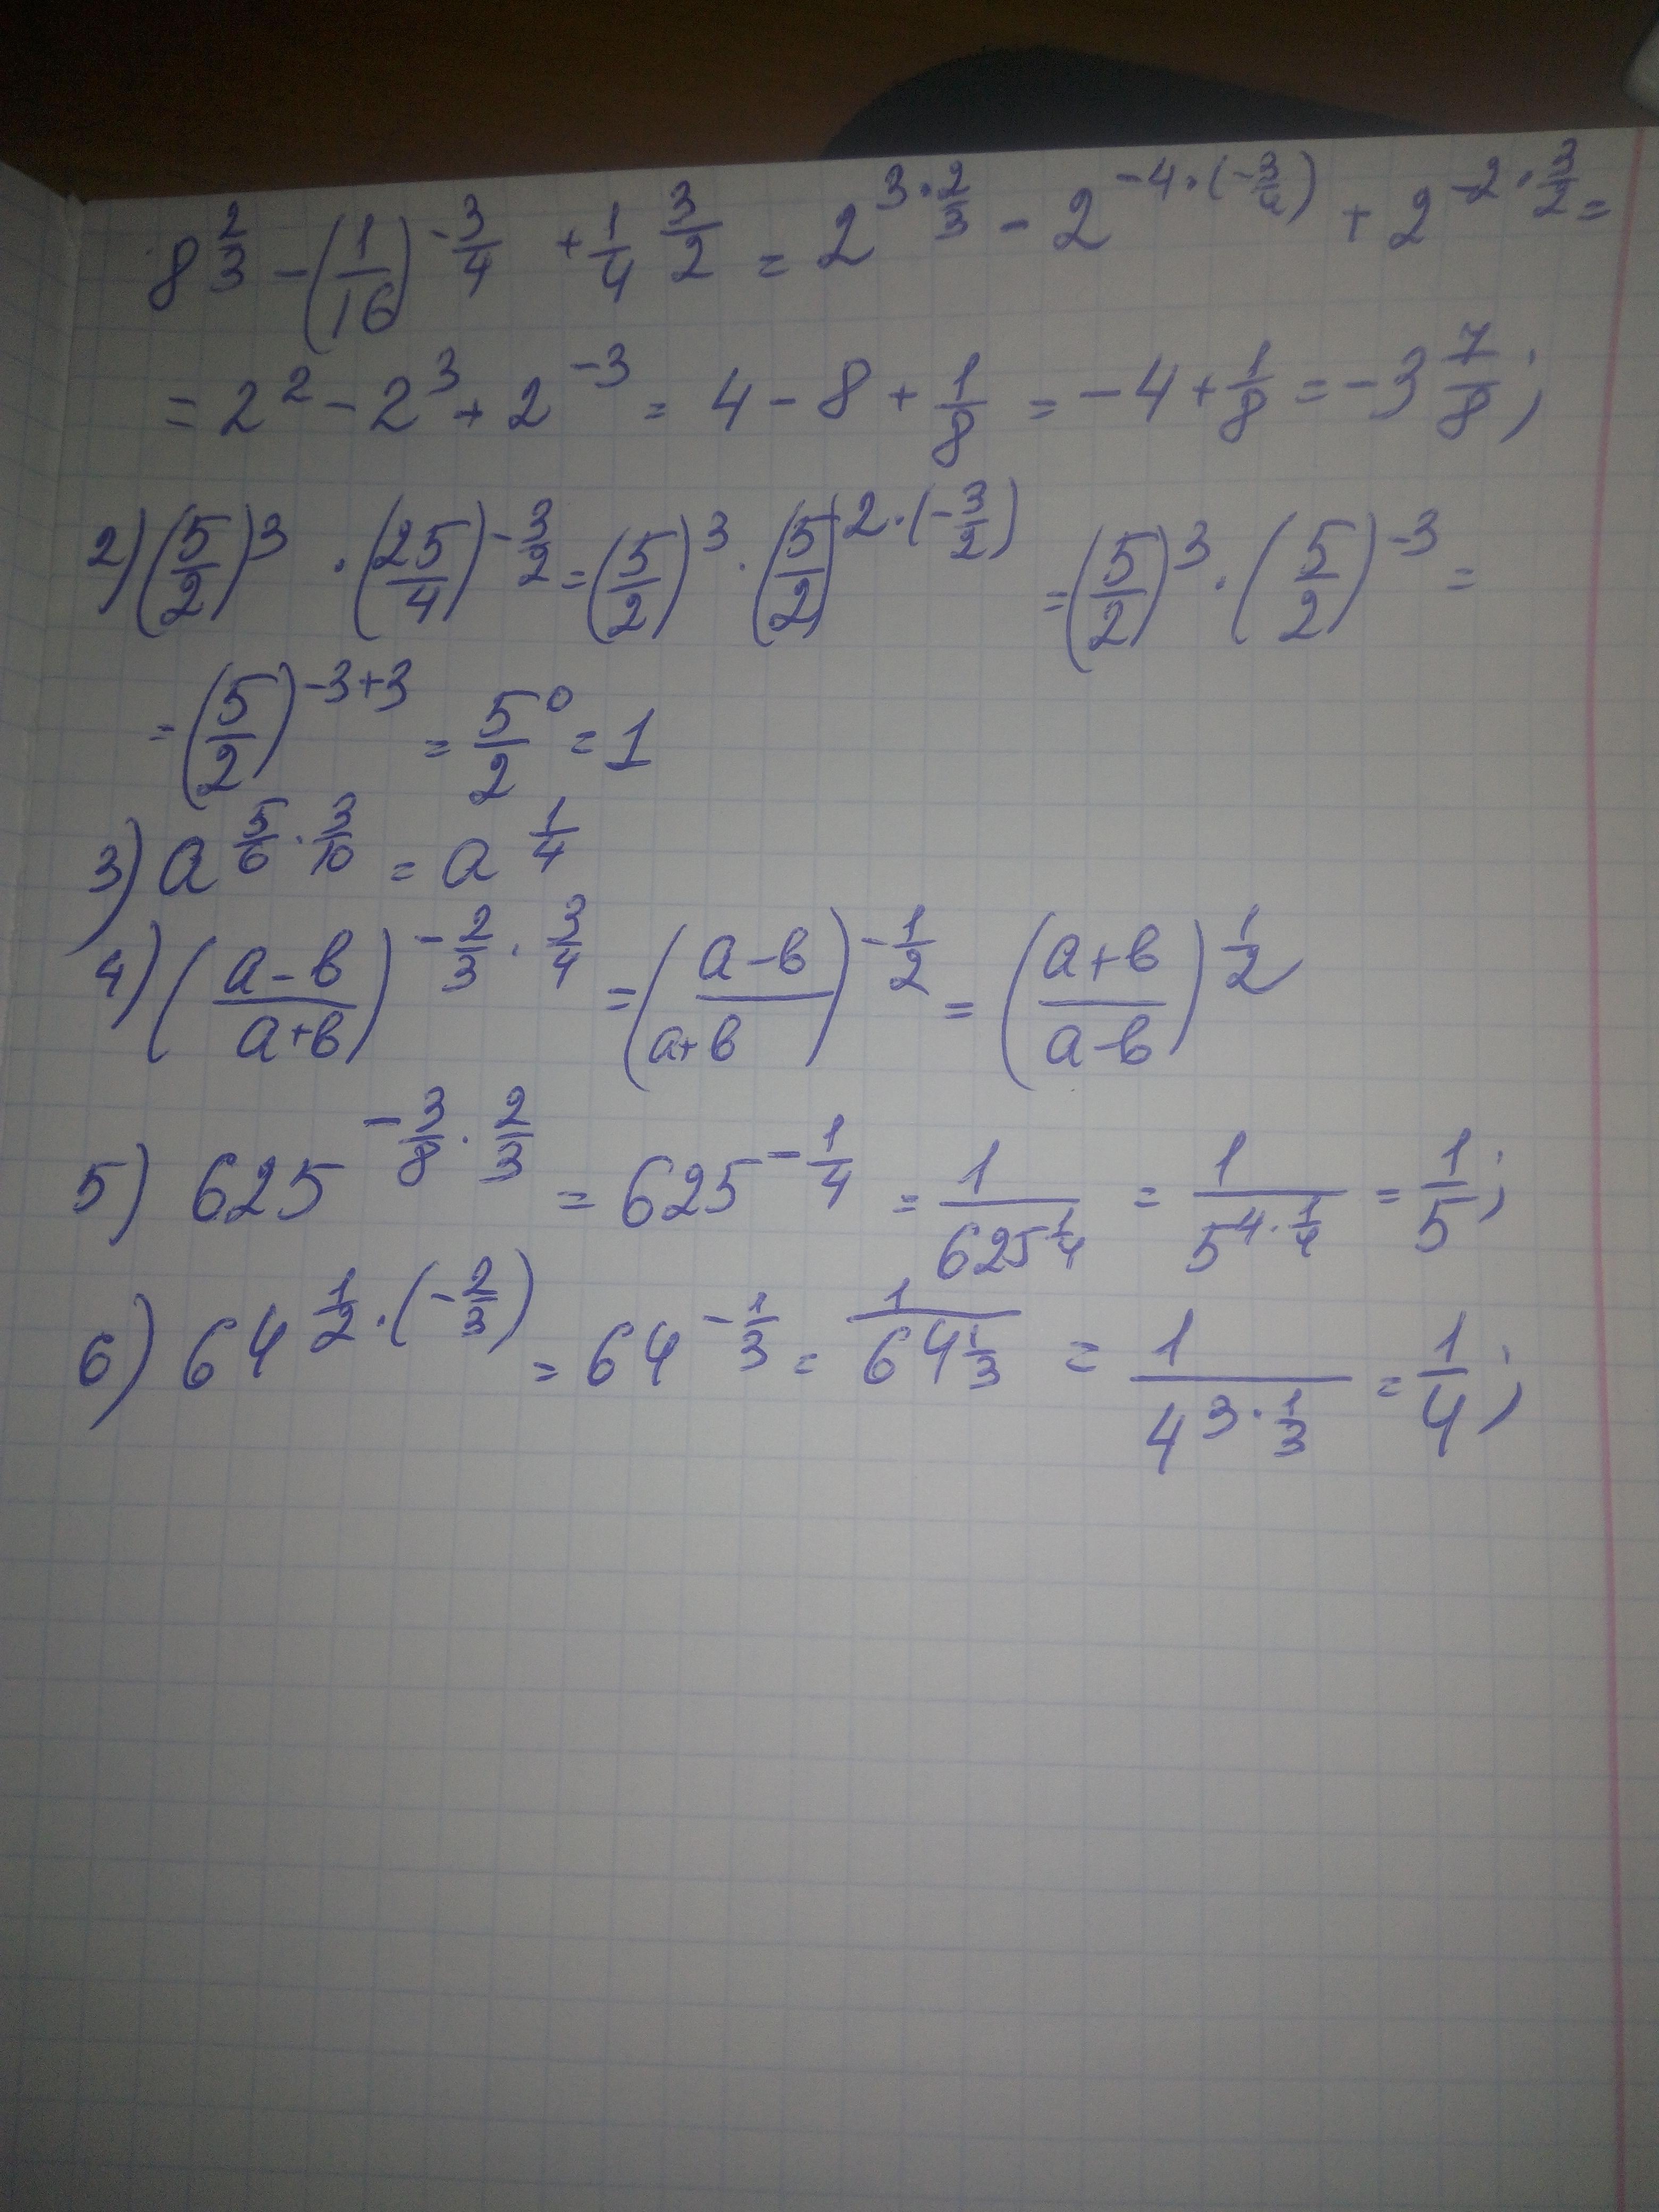 8^(2/3) - (1/16)^(-3/4) + 1/4^(3/2) = 2^(3·2/3) - 2^(-4·(-3/4)) + 2^(-2·3/2) =
= 2^2 - 2^3 + 2^(-3) = 4 - 8 + 1/8 = -4 + 1/8 = -3 7/8;
2) (5/2)^3 · (25/4)^(-3/2) = (5/2)^3 · (5/2)^(2·(-3/2)) = (5/2)^3 · (5/2)^(-3) =
= (5/2)^(-3+3) = 5/2^0 = 1
3) a^(5/6·3/10) = a^(1/4)
4) ((a-b)/(a+b))^(-2/3·3/4) = ((a-b)/(a+b))^(-1/2) = ((a+b)/(a-b))^(1/2)
5) 625^(-3/8·2/3) = 625^(-1/4) = 1/625^(1/4) = 1/5^(4·1/4) = 1/5;
6) 64^(1/2·(-2/3)) = 64^(-1/3) = 1/64^(1/3) = 1/4^(3·1/3) = 1/4;